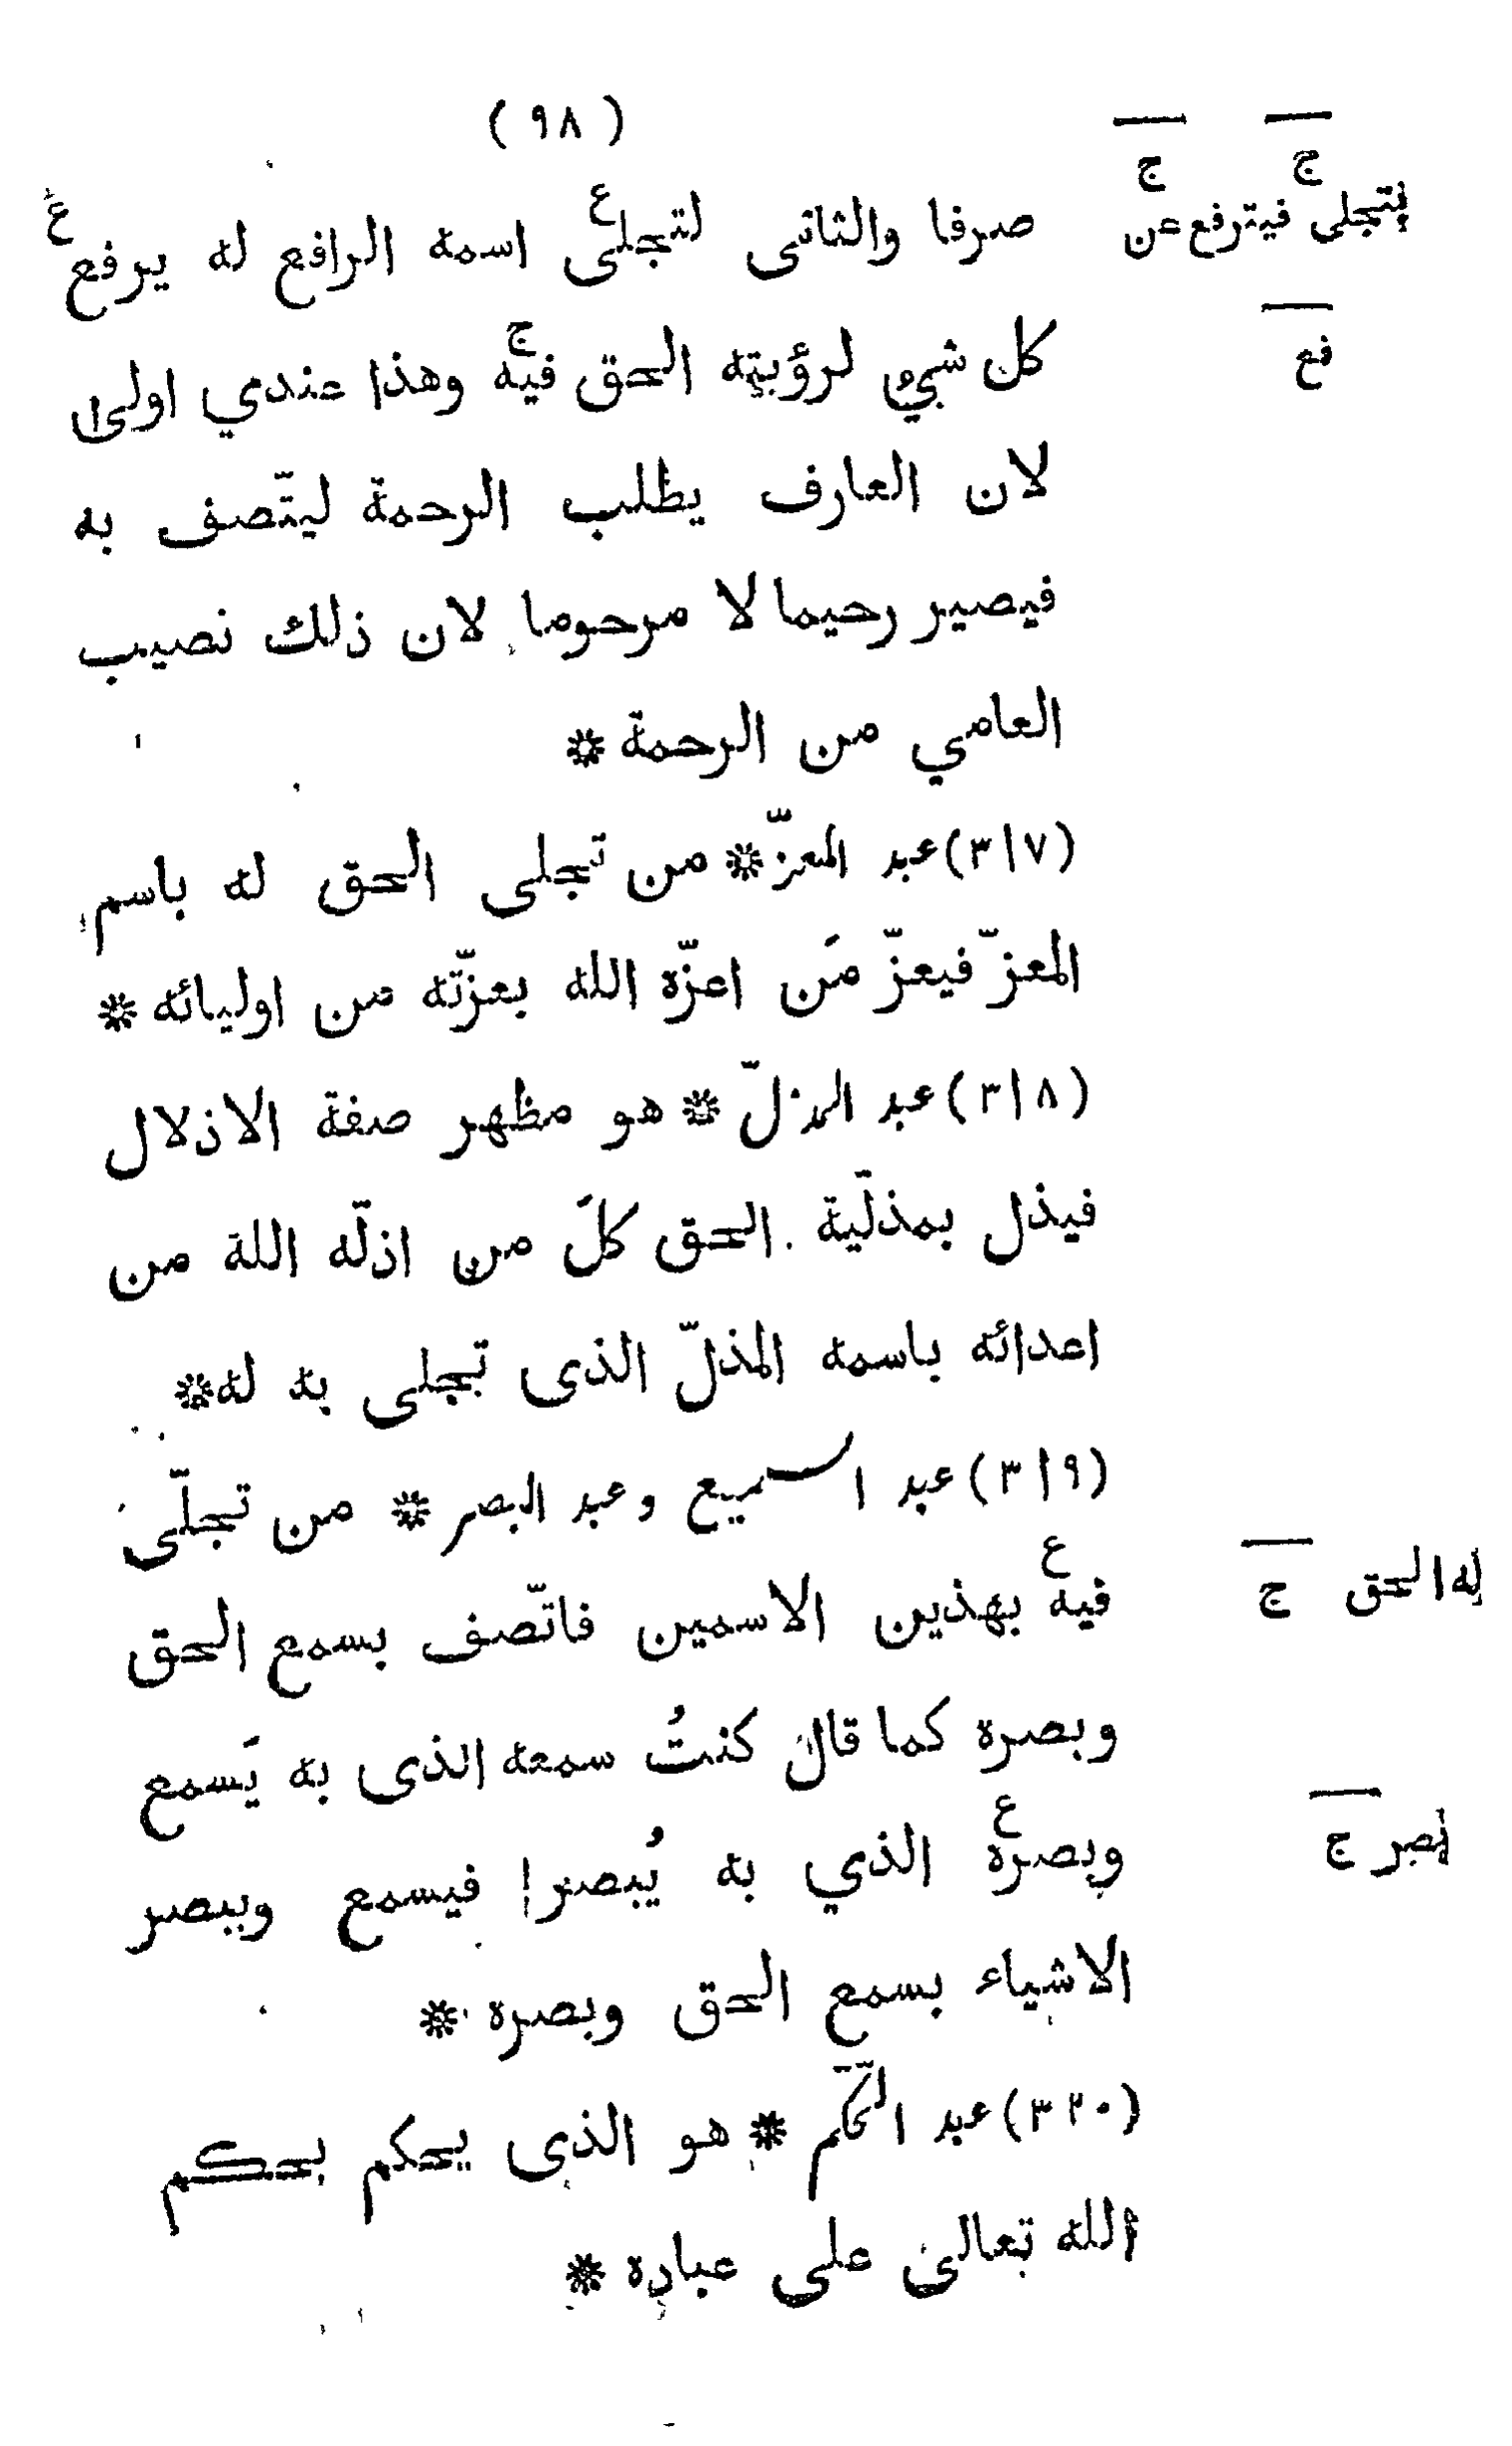 ( ٩٨ )
صرفا والثانى لتجلى ع اسمه الرافع له يرفع ع
كل شيء لرؤيته الحق فيه ج وهذا عندي اولى
لان العارف يطلب الرحمة ليتّصف به
فيصير رحيما لا مرحوما لان ذلك نصيب
العامي من الرحمة *
(٣١٧) عبد المعزّ * من تجلى الحق له باسم
المعزّ فيعزّ مَن اعزّه الله بعزّته من اوليائه *
(٣١٨) عبد المذلّ * هو مظهر صفة الاذلال
فيذل بمذلّية الحق كلَ من اذلّه الله من
اعدائه باسمه المذلّ الذى تجلى به له *
(٣١٩) عبد السميع وعبد البصر * من تجلّى
فيه ع بهذين الاسمين فاتّصف بسمع الحق
وبصره كما قال كنتُ سمعه الذى به يَسمع
وبصره ع الذي به يُبصر فيسمع ويبصر
الاشياء بسمع الحق وبصره *
(٣٢٠) عبد الحَكَم * هو الذى يحكم بحكم
الله تعالى على عباده *
ج ج
يتجلى فيترفع عن
فع
له الحق ج
ج